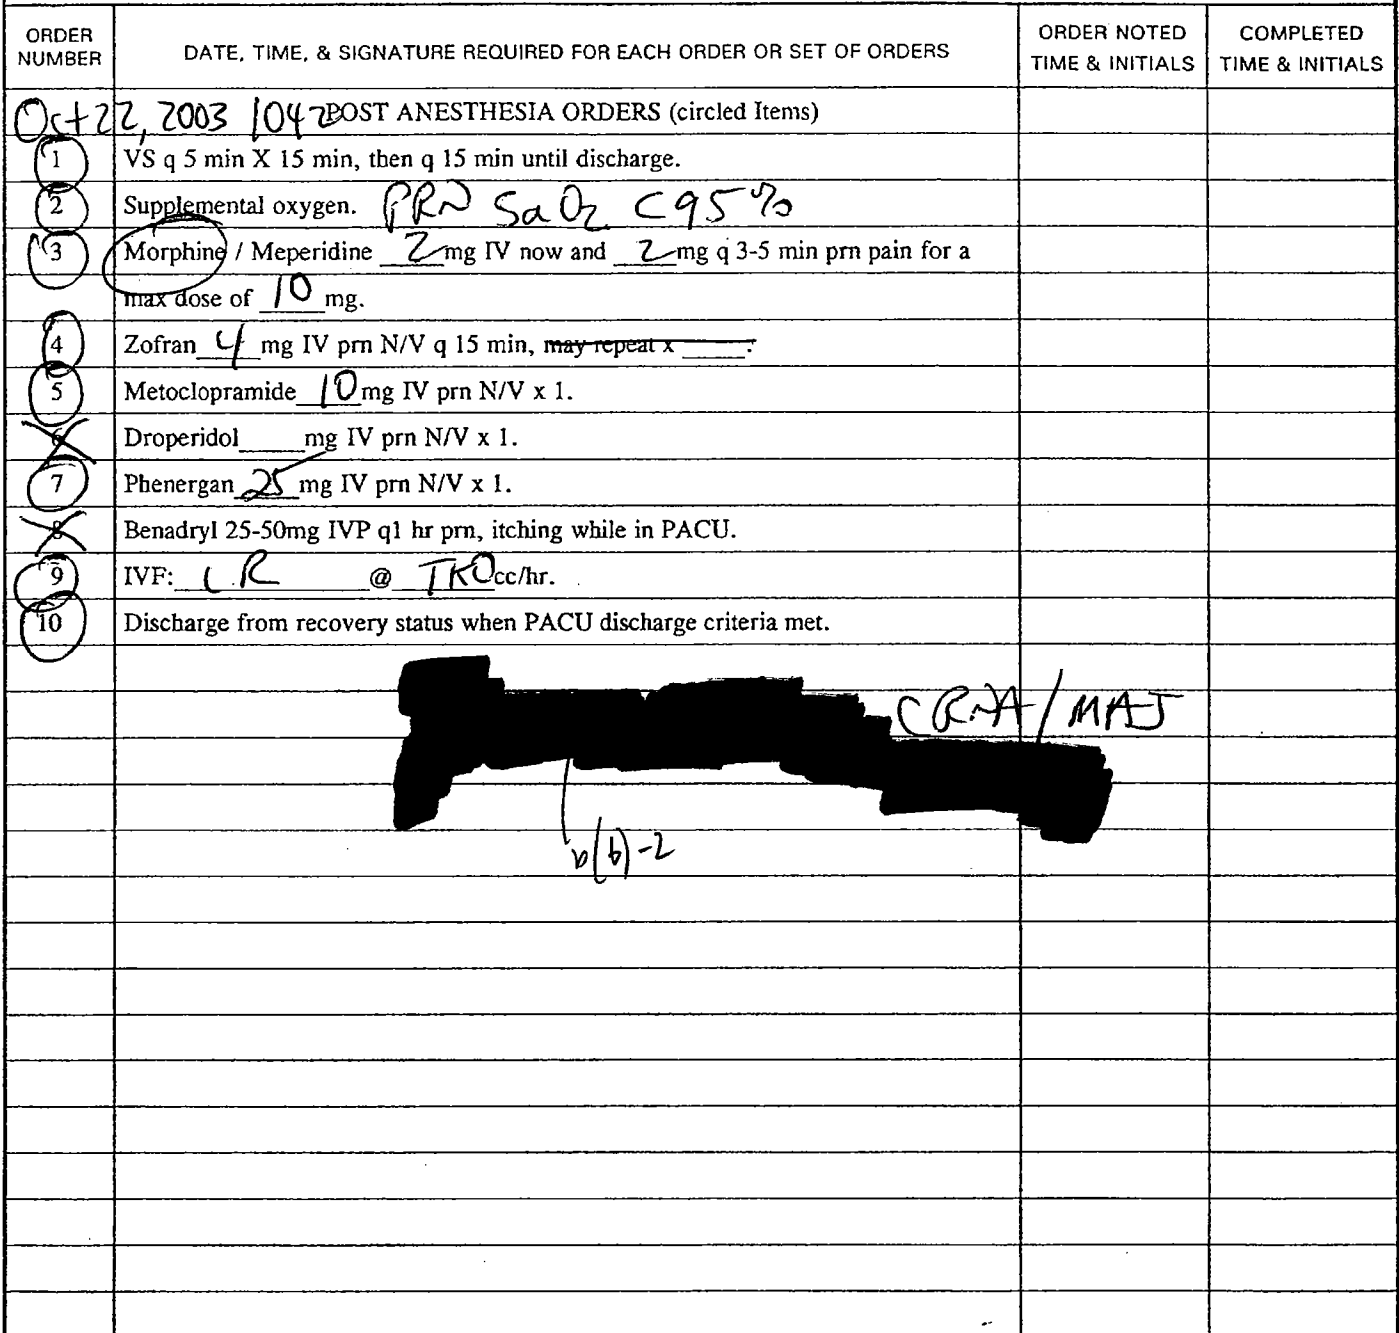 ORDER NUMBER
DATE, TIME, & SIGNATURE REQUIRED FOR EACH ORDER OR SET OF ORDERS
ORDER NOTED TIME & INITIALS
COMPLETED TIME & INITIALS
Oct 22, 2003 1042 POST ANESTHESIA ORDERS (circled Items)
1 VS q 5 min X 15 min, then q 15 min until discharge.
2 Supplemental oxygen. PRN SaO2 <95%
3 Morphine / Meperidine 2 mg IV now and 2 mg q 3-5 min prn pain for a
max dose of 10 mg.
4 Zofran 4 mg IV prn N/V q 15 min, may repeat x ____.
5 Metoclopramide 10 mg IV prn N/V x 1.
6 Droperidol ____ mg IV prn N/V x 1.
7 Phenergan 25 mg IV prn N/V x 1.
8 Benadryl 25-50mg IVP q1 hr prn, itching while in PACU.
9 IVF: LR @ TKO cc/hr.
10 Discharge from recovery status when PACU discharge criteria met.
CRNA/MAJ
b(6)-2